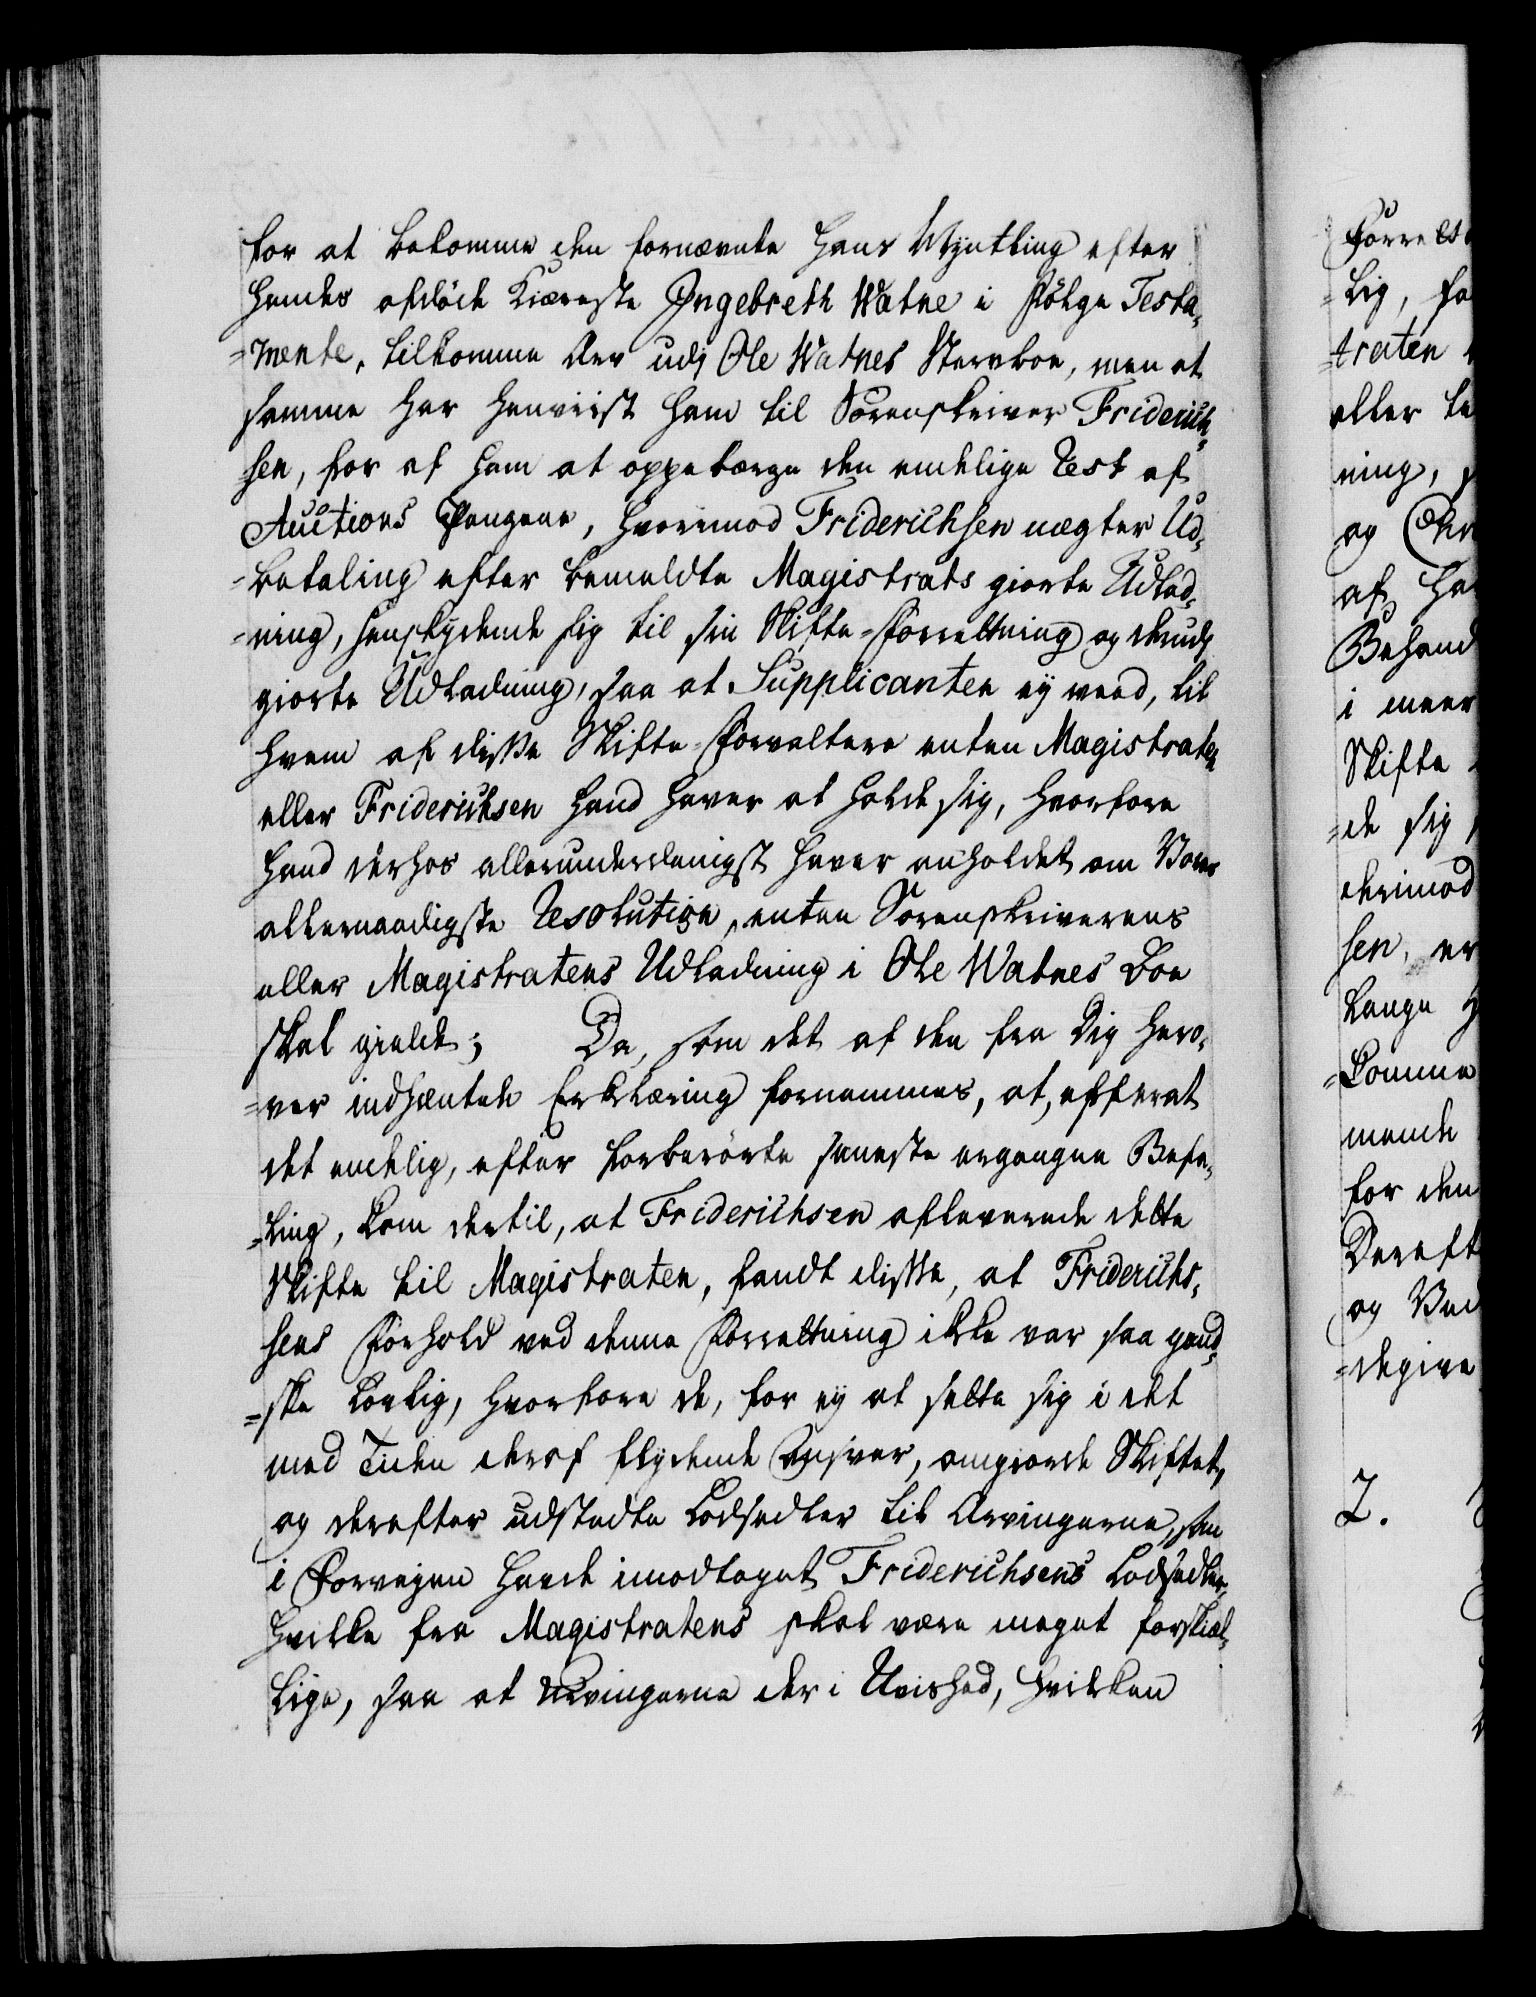 for at bekomme den fornævnte hans Myntling efter
hendes afdöde Kiæreste Ingebreth Watne i fölge Testa¬
=mente, tilkomme Arv udj Ole Watnes Sterfboe, men at
samme har henviist ham til Sorenskriver Friderich¬
sen, for af ham at oppebærge den endelige Rest af
Auctions Pengene, hvorimod Friderichsen nægter Ud¬
=betaling efter bemeldte Magistrats giorte Udlod¬
=ning, henskydende sig til sin Skifte-Forretning og derudj
giorte Udlodning, saa at Supplicanten ej veed, til
hvem af disse Skifte-Forvaltere enten Magistraten
eller Friderichsen hand haver at holde sig, hvorfore
hand derhos allerunderdanigst haver anholdet om Vores
allernaadigste Resolution, enten Sorenskriverens
eller Magistratens Udlodning i Ole Watnes Boe
skal gielde; Da, som det af den fra Dig her o¬
=ver indhæntede Erklæring fornemmes, at, efterat
det endelig, efter forberörte seneste ergangne Befa¬
=ling, kom dertil, at Friderichsen afleverede dette
Skifte til Magistraten, fandt disse, at Friderichs¬
sens Forhold ved denne Forretning ikke var saa gand¬
=ske lovlig, hvorfore de, for ej at sette sig i det
med Tiden deraf flydende Ansvar, omgiorde Skiftet,
og derefter udstedte Lodsedler til Arvingerne, som
i Forvejen havde imodtaget Friderichsens Lodsedler,
hvilke fra Magistratens skal være meget forskiæl¬
lige, saa at Arvingerne der i Uvished, hvilken
Forrets
=lig, fo
=traten
eller
ning,
og
af
Behand
i meer
Skifte
=de sig
derimod
sen, er
lange
=komme
mende
for den
Dereft
og Ved
=degive
2.